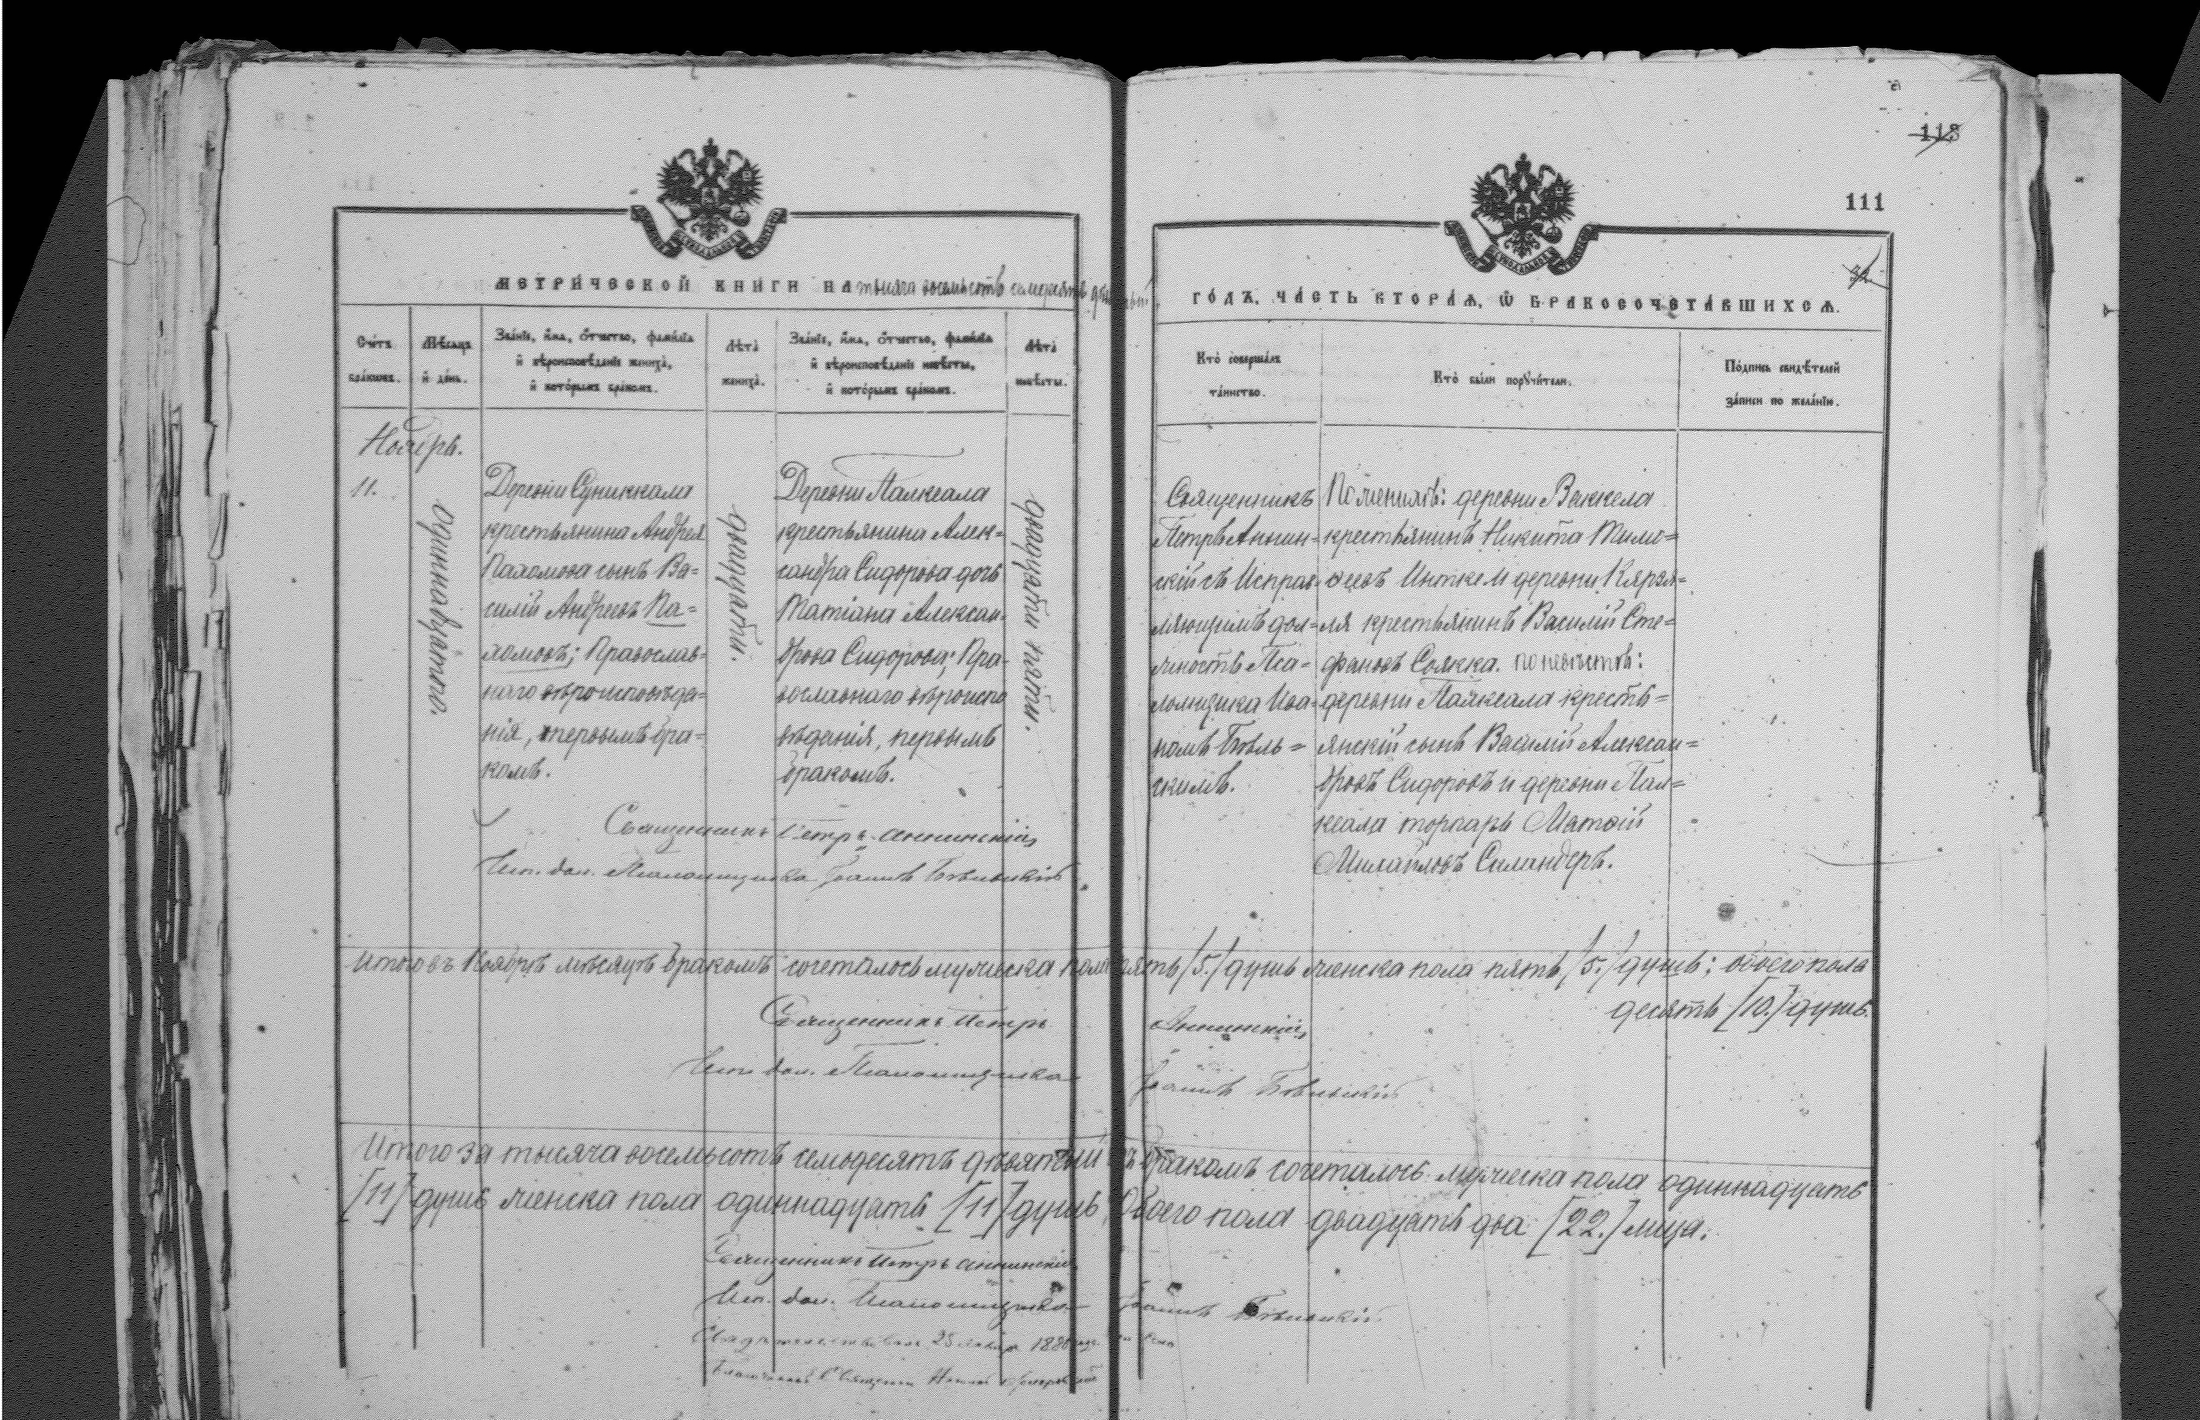 118
111
32
МЕТРИЧЕСКОЙ КНИГИ НА тысяча восемьсотъ семьдесятъ девятый
ГОДЪ, ЧАСТЬ ВТОРАЯ, Ѡ БРАКОСОЧЕТАВШИХСЯ.
Счетъ браковъ.
Мѣсяцъ и день.
Званіе, имя, отчество, фамилія
и вѣроисповѣданіе жениха,
и которымъ бракомъ.
Лѣта жениха.
Званіе, имя, отчество, фамилія
и вѣроисповѣданіе невѣсты,
и которымъ бракомъ.
Лѣта невѣсты.
Кто совершалъ
таинство.
Кто были поручители.
Подпись свидѣтелей
записи по желанію.
Ноябрь.
11.
одиннадцатаго.
Деревни Суниккала
крестьянина Андрея
Пахомова сынъ Ва=
силій Андреевъ Па=
хомовъ; Православ=
наго вѣроисповѣда=
нія, первымъ бра=
комъ.
двадцати.
Деревни Палкеала
крестьянина Алек=
сандра Сидорова дочь
Татіана Алексан=
дрова Сидорова; Пра=
вославнаго вѣроиспо
вѣданія, первымъ
бракомъ.
двадцати пяти.
Священникъ
Петръ Аннин=
скій съ Исправ=
ляющимъ дол=
жность Пса=
ломщика Іоа=
номъ Бѣль=
скимъ.
По женихѣ: деревни Ваккела
крестьянинъ Никита Тимо=
ѳеевъ Интке и деревни Кярзя=
ля крестьянинъ Василій Сте=
фановъ Соккка. по невѣстѣ:
деревни Палкеала кресть=
янскій сынъ Василій Алексан=
дровъ Сидоровъ и деревни Пал=
кеала торпарь Матвій
Михайловъ Силандеръ.
Священникъ Петръ Аннинскій
Исп. дол. Псаломщика Іоаннъ Бѣльскій
Итого въ Ноябрѣ мѣсяцѣ бракомъ сочеталось мужеска пола пять /5./ душъ женска пола пять /5./ душъ; обоего пола
десять [10.] душъ.
Священникъ Петръ Аннинскій
Исп. дол. Псаломщика Іоаннъ Бѣльскій
Итого за тысяча восемьсотъ семьдесятъ девятый бракомъ сочеталось мужеска пола одиннадцать
[11] душъ женска пола одиннадцать [11] душъ, Обоего пола двадцать два [22.] лица.
Священникъ Петръ Аннинскій
Исп. дол. Псаломщика Іоаннъ Бѣльскій
Свидѣтельствовалъ 1880
Благочинный Священникъ